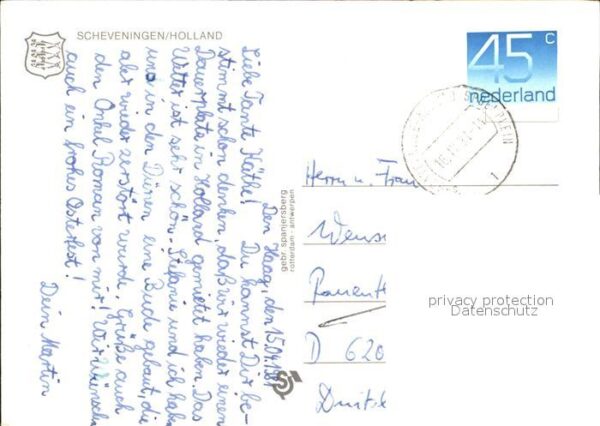 SCHEVENINGEN/HOLLAND
45 c
nederland
Den Haag, den 15.04.81
Liebe Tante Käthe! Du kannst Dir be-
stimmt schon denken, daß wir wieder einen
Dauerplatz in Holland gemietet haben. Das
Wetter ist sehr schön. Stefanie und ich haben
uns in den Dünen eine Bude gebaut, die
aber wieder zerstört wurde. Grüße auch
den Onkel Roman von mir! Wir wünschen
auch ein frohes Osterfest!
Dein Martin
gebr. spanjersberg
rotterdam - antwerpen
Herrn u. Frau
D 620
privacy protection
Datenschutz